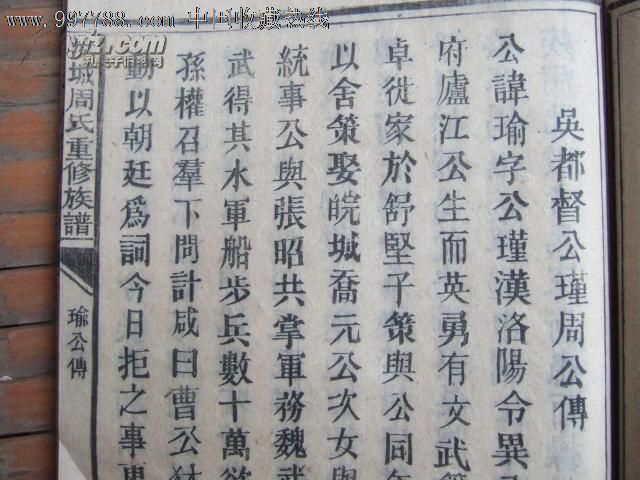 www.997788.com 中国收藏热线
吳都督公瑾周公傳
公諱瑜字公瑾漢洛陽令異
府廬江公生而英勇有文武
卓徙家於舒堅子策與公同
以舍策娶皖城喬元公次女與
統事公與張昭共掌軍務魏武
武得其水軍船步兵數十萬欲
孫權召羣下問計咸曰曹公
動以朝廷爲詞今日拒之事
城周氏重修族譜
瑜公傳